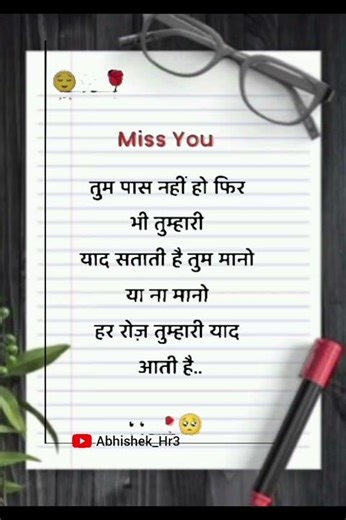 Miss You
तुम पास नहीं हो फिर
भी तुम्हारी
याद सताती है तुम मानो
या ना मानो
हर रोज़ तुम्हारी याद
आती है..
Abhishek_Hr3